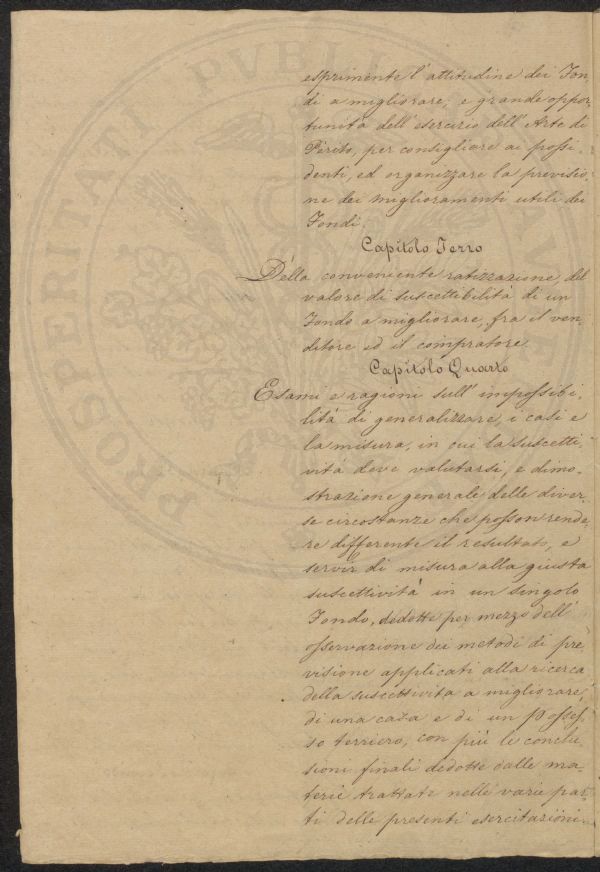 esprimente l'attitudine dei Fon-
di a migliorare, e grande oppor-
tunità dell'esercizio dell'Arte di
Perito, per consigliare ai possi-
denti, ed organizzare la previsio-
ne dei miglioramenti utili dei
Fondi.
Capitolo Terzo
Della conveniente ratizzazione, del
valore di suscettibilità di un
Fondo a migliorare, fra il ven-
ditore ed il compratore.
Capitolo Quarto
Esami e ragioni sull'impossibi-
lità di generalizzare, i casi e
la misura, in cui la suscetti-
vità deve valutarsi, e dimo-
strazione generale delle diver-
se circostanze che posson rende-
re differente il resultato, e
servir di misura alla giusta
suscettività in un singolo
Fondo, dedotte per mezzo dell'
osservazione dei metodi di pre-
visione applicati alla ricerca
della suscettività a migliorare,
di una casa e di un Posses-
so terriero, con più le conclu-
sioni finali dedotte dalle ma-
terie trattate nelle varie par-
ti delle presenti esercitazioni.
PROSPERITATI PVBLI